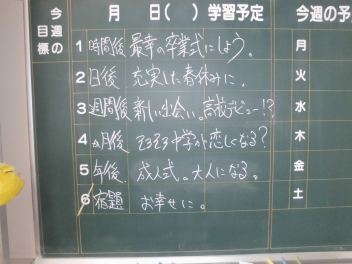 今週の目標
月 日( ) 学習予定
今週の予
1 時間後 最幸の卒業式にしよう。
2 日後 充実した春休みに。
3 週間後 新しい出会い。高校デビュー!?
4 ヵ月後 そろそろ中学が恋しくなる?
5 年後 成人式。大人になる。
6 宿題 お幸せに。
月
火
水
木
金
土